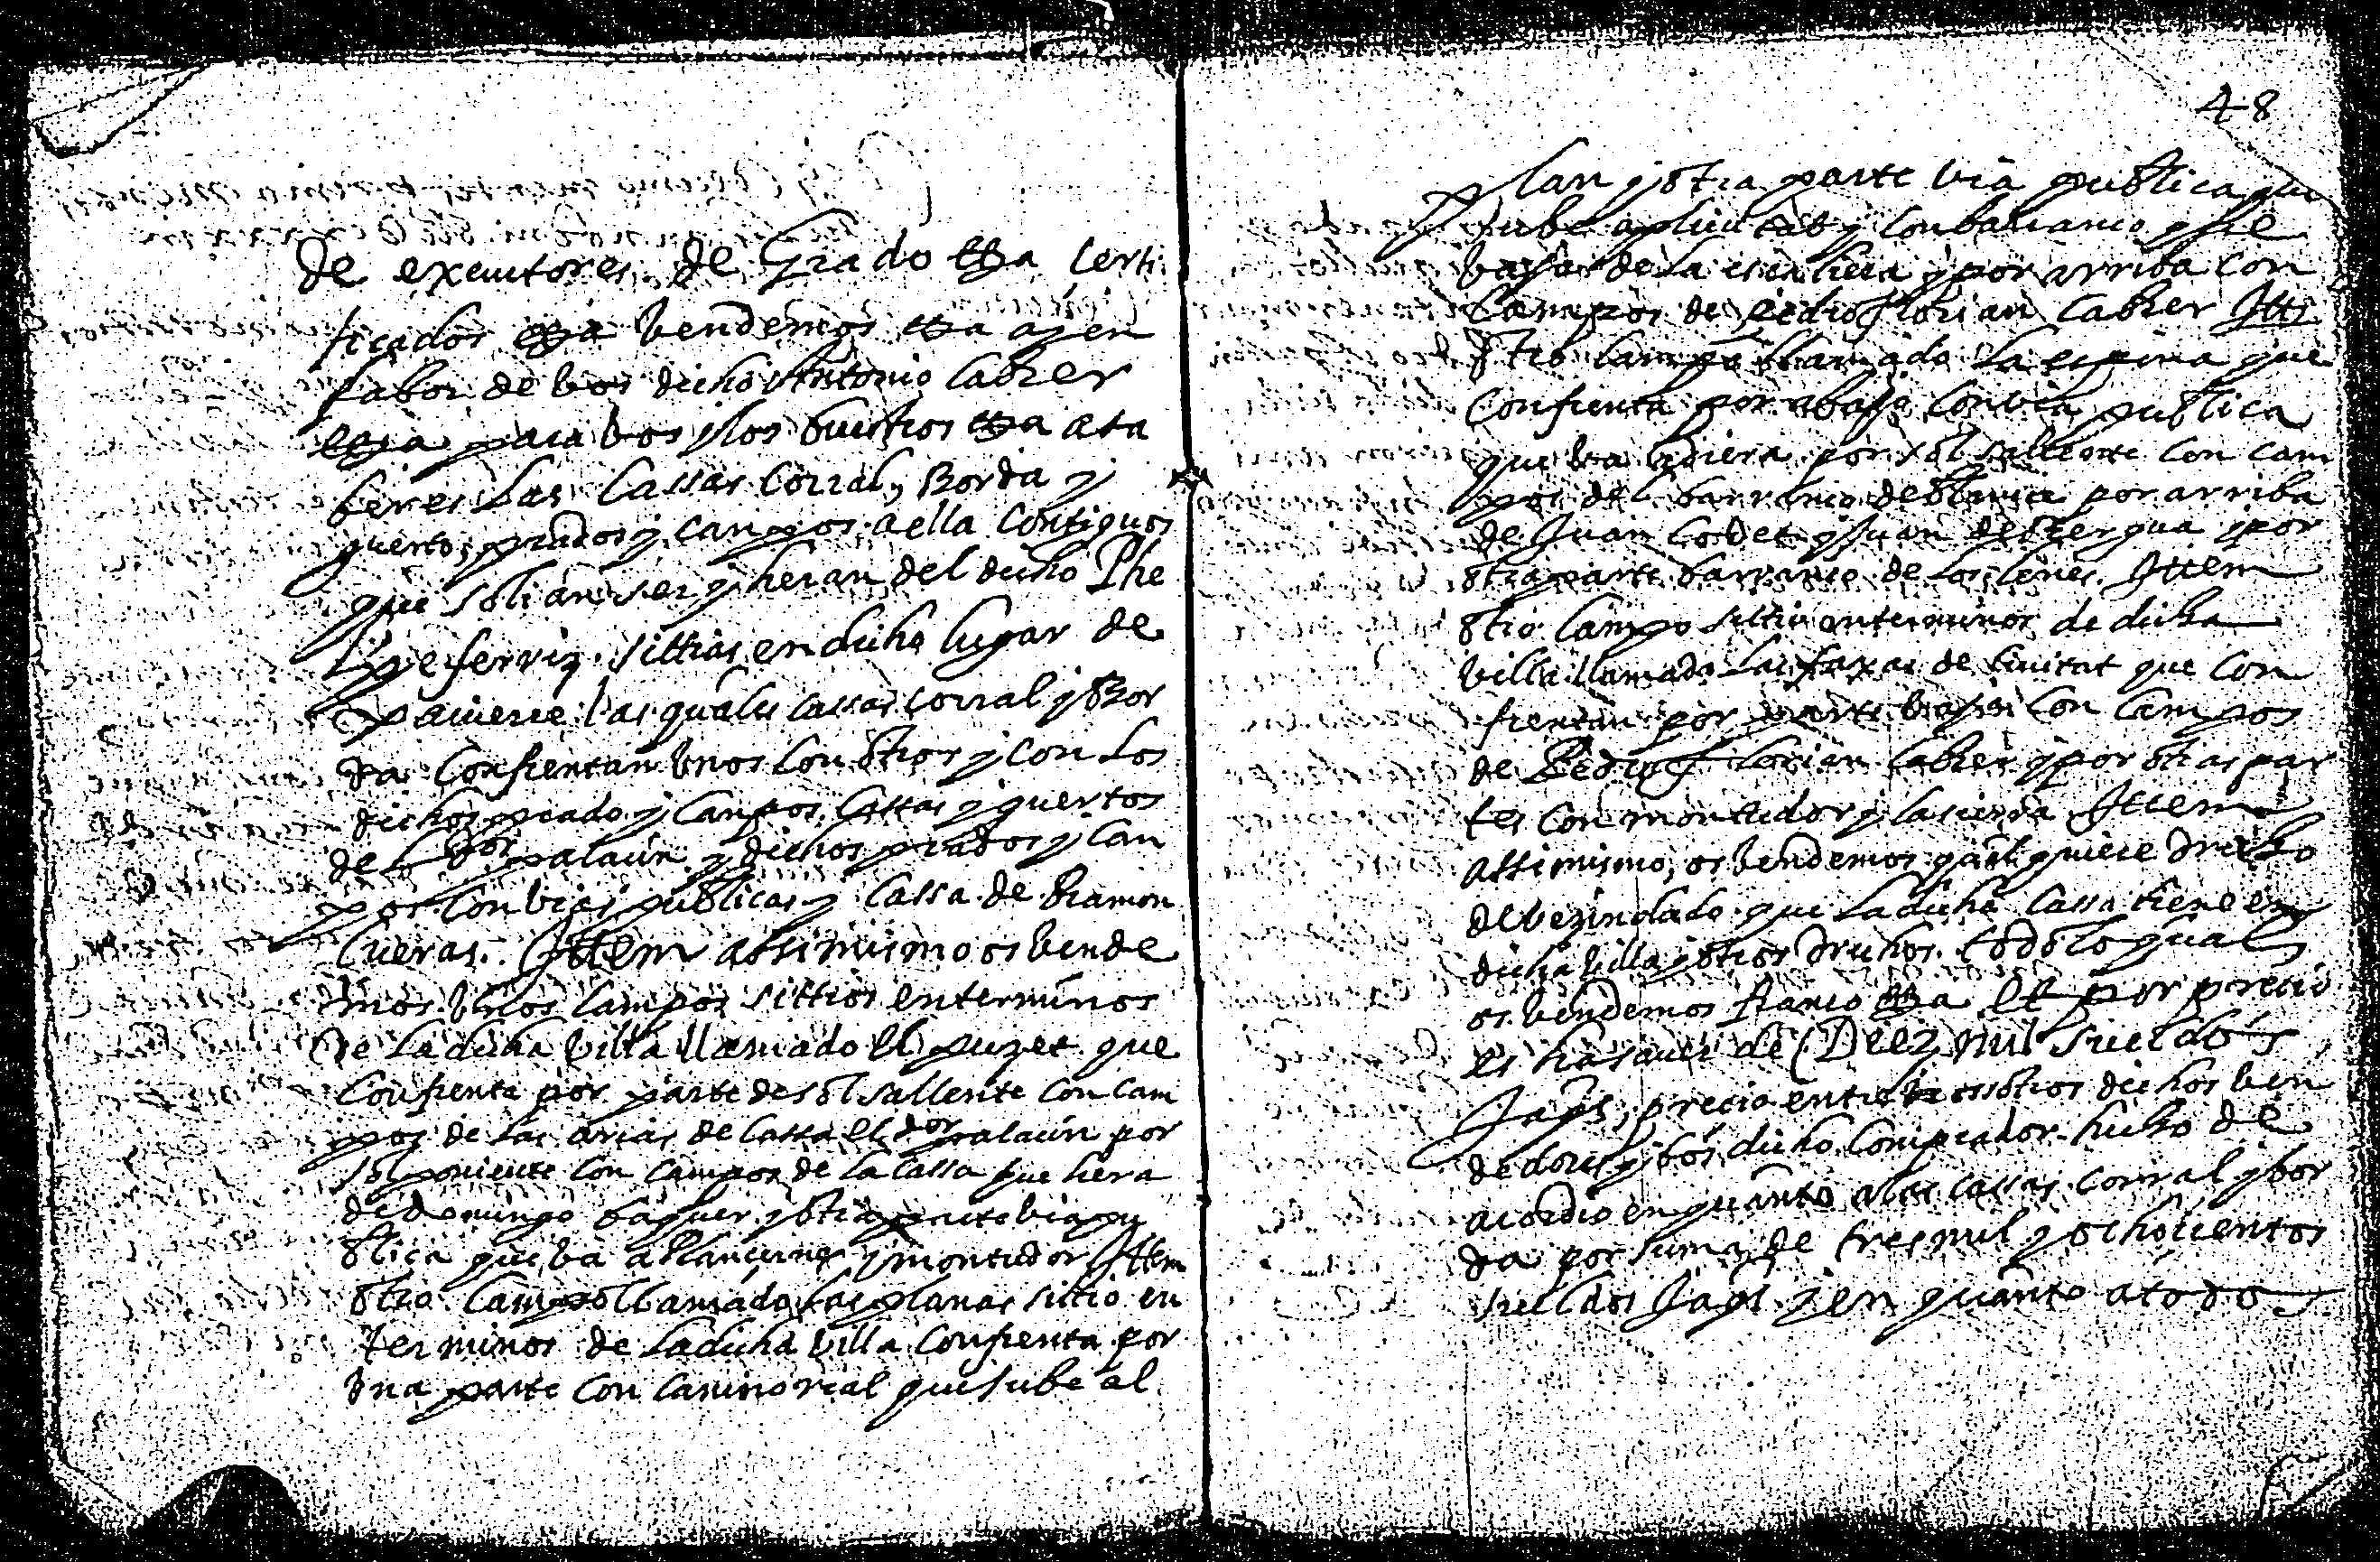 de executores de Grado etta certi
ficados etta vendemos etta a y en
fabor de vos dicho Antonio Cabrer
etta para vos y los buestros etta ata
beres las cassas corral y Borda y
guerto, prados y campos a ella contiguos
que solian ser y heran del dicho Phe
lipe ferriz sittias en dicho lugar de
las quales cassas corral y Bor
da confrentan unos con otros y con los
dichos prado y campos cassas y guertos
de palacin y dichos prados y can
pos con vias publicas y cassa de Ramon
Cueras. Ittem assimismo os vende
mos unos campos sittios en terminos
de la dicha villa llamado el puzet que
confrenta por parte de sol sallente con cam
pos de las arias de cassa el dor palacin por
sol poniente con campos de la cassa que hera
de Domingo baguer y otra parte via pu
blica que va a y montidor Ittem
otro campo llamado las planas sittio en
terminos de la dicha villa confrenta por
una parte con camino real que sube al
48
plan y otra parte via publica que
sube a plicitat y con barranco que
baxa de la escalera y por arriba con
campos de Pedro florian Cabrer Itt
otro campo llamado la espina que
confrenta por abaxo con via publica
que va por sol sallente con cam
pos del barranco de por arriba
de Juan Codet y Juan de y por
otra parte barranco de los Itten
otro campo sittio en terminos de dicha
villa llamado las faxas de ciuitat que con
frentan por parte baxa con campos
de Pedro florian Cabrer y por otras par
tes con montidor y la sierra Ittem
assimismo, os vendemos qualquiere drecho
de vezindado que la dicha cassa tiene en
dicha villa y otros drechos todo lo qual
os vendemos franco etta et por precio
es hasauer de Diez mil sueldos
Jaqs, precio entre nossotros dichos ven
dedores y vos dicho comprador hecho de
acordio en quanto a las cassas corral y bor
da por suma de tres mil y ochocientos
sueldos Jaqs y en quanto a todos